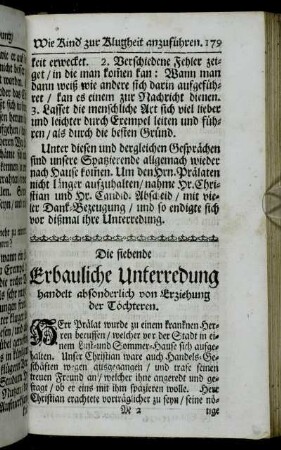 Wie Kind zur Klugheit anzuführen. 179
keit erwecket. 2. Verschiedene Fehler zei-
get / in die man kom̃en kan: Wann man
dann weiß wie andere sich darin aufgefüh-
ret / kan es einem zur Nachricht dienen.
3. Lasset die menschliche Art sich viel lie-
ber und leichter durch Exempel leiten und füh-
ren / als durch die besten Gründ.
Unter diesen und dergleichen Gesprächen
sind unsere Spatzierende allgemach wieder
nach Hause kom̃en. Um den Hrn. Prälaten
nicht länger aufzuhalten / nahme Hr. Chri-
stian und Hr. Candid. Abscheid / mit vie-
ler Dank-Bezeugung / und so endigte sich
vor dißmal ihre Unterredung.
Die siebende
Erbauliche Unterredung
handelt absonderlich von Erziehung
der Töchteren.
HErr Prälat wurde zu einem kranknen Her-
ren beruffen / welcher vor der Stadt in ei-
nem Lust-und Sommer-Hause sich aufge
halten. Unser Christian ware auch Handels-Ge-
schäfften wegen ausgegangen / und trafe seinen
treuen Freund an / welcher ihne angeredt und ge-
fragt / ob er eins mit ihm spazieren wolle. Herr
Christian erachtete vorträglicher zu seyn / seine nö-
M 2 tige